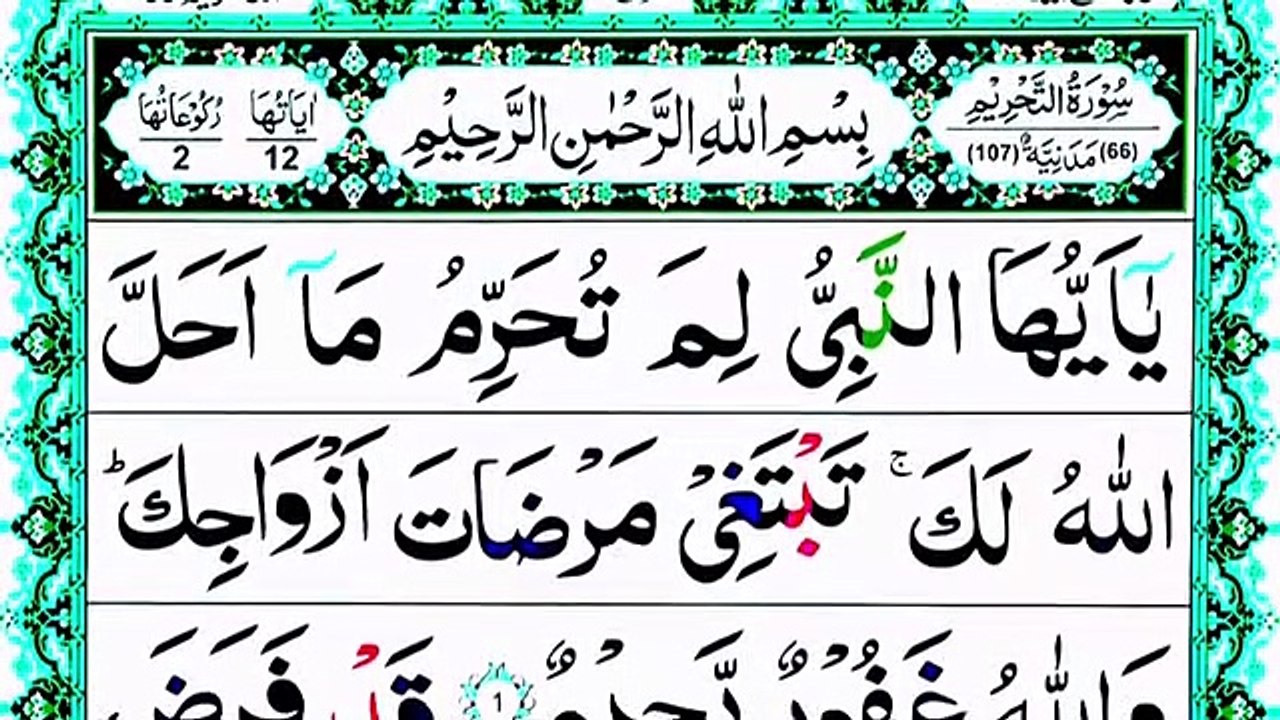 سُوْرَةُ التَّحْرِيْمِ
(66) مَدَنِيَّةٌ (107)
بِسْمِ اللّٰهِ الرَّحْمٰنِ الرَّحِيْمِ
اٰيَاتُهَا 12
رُكُوْعَاتُهَا 2
يٰۤاَيُّهَا النَّبِيُّ لِمَ تُحَرِّمُ مَاۤ اَحَلَّ
اللّٰهُ لَكَ ۚ تَبْتَغِيْ مَرْضَاتَ اَزْوَاجِكَ ؕ
وَاللّٰهُ غَفُوْرٌ رَّحِيْمٌ 1 قَدْ فَرَضَ